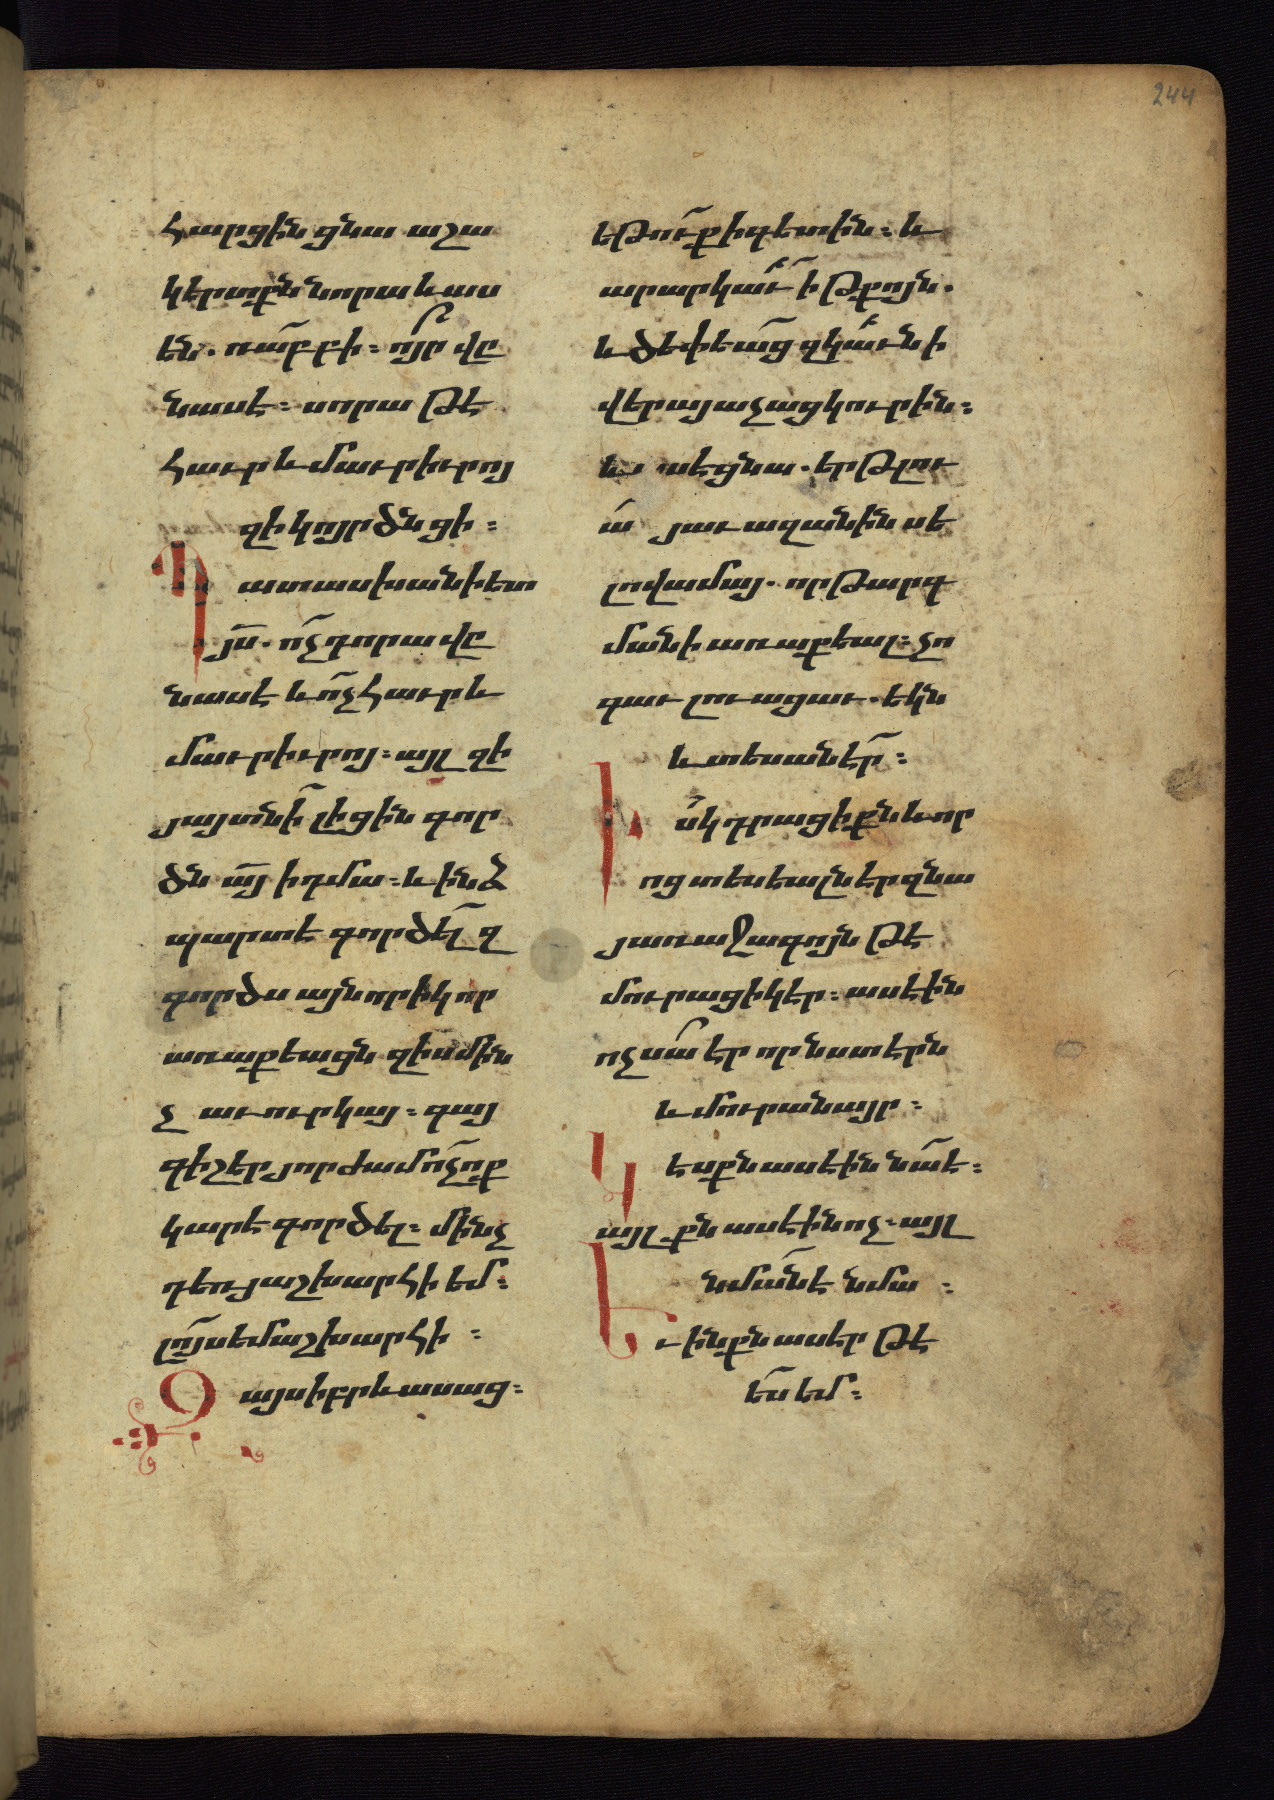 244
Հարցին ցնա աշա
կերտքն նորա և աս
են. ռաբբի։ ո՞յր վը
նաս է։ սորա թէ
հաւր և մաւր իւրոյ
զի կոյր ծնցի։
Պատասխանի ետ
յս̅. ոչ դորա վը
նաս է և ոչ հաւր և
մաւր իւրոյ։ այլ զի
յայտնի լիցին գոր
ծն ա̅յ ի դմա։ և ինձ
պարտ է գործել զ
գործս այնորիկ որ
առաքեացն զիս մին
չ աւուր կայ։ գայ
գիշեր յորժամ ոչ ոք
կարէ գործել։ մինչ
դեռ յաշխարհի եմ։
լոյս եմ աշխարհի։
Զայս իբրև ասաց։
եթուք ի գետին։ և
արար կաւ ի թքոյն.
և ծեփեաց զկաւն ի
վերայ աչաց կուրին։
և ասէ ցնա. երթ լու
ա յաւազանին սե
լովամայ. որ թարգ
մանի առաքեալ։ չո
գաւ լուացաւ. եկն
և տեսանէր։
Իսկ դրացիքն և որ
ոց տեսեալն էր զնա
յառաջագոյն թէ
մուրացիկ էր։ ասէին
ոչ սա էր որ նստէրն
և մուրանայր։
Կեսքն ասէին նա է։
այլքն ասէին ոչ։ այլ
նման է նմա։
Եւ ինքն ասէր թէ
ես եմ։